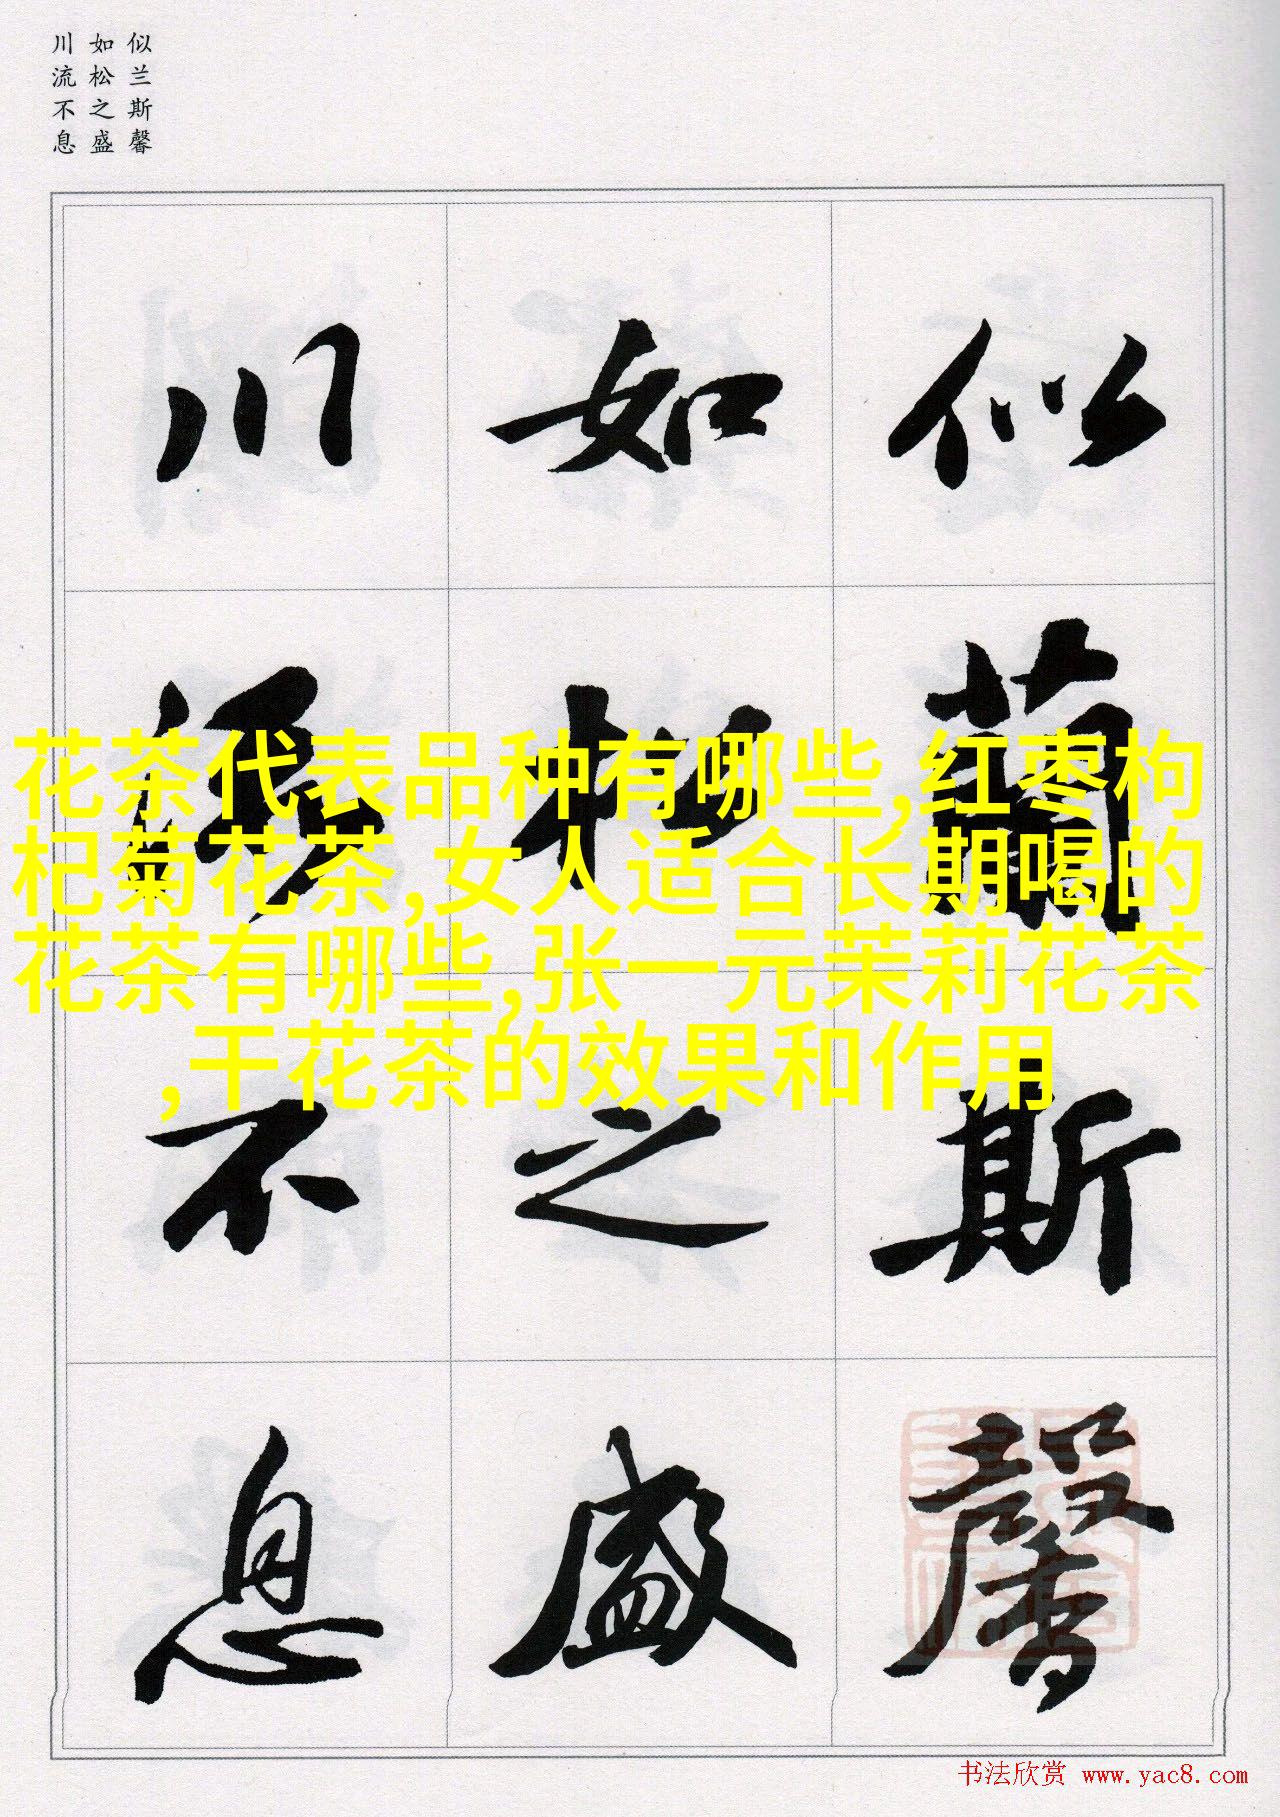 似兰斯馨
如松之盛
川流不息
似蘭斯馨
如松之盛
川流不息
花茶代表品种有哪些,红枣枸
杞菊花茶,女人适合长期喝的
花茶有哪些,张一元茉莉花茶
,干花茶的效果和作用
书法欣赏 www.yac8.com